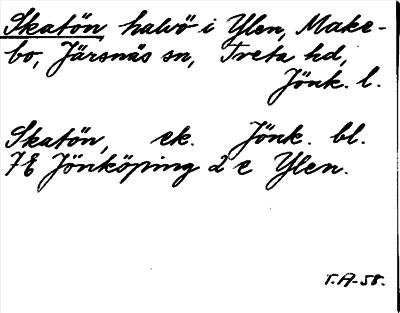 Skatön, halvö i Ylen, Make-
bo, Järsnäs sn, Tveta hd,
Jönk. l.
Skatön, ek. Jönk. bl.
7E Jönköping 2 e Ylen.
T.A-58.